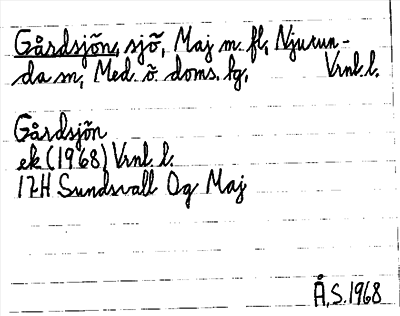 Gårdsjön, sjö, Maj m. fl, Njurun-
da sn, Med. ö. doms. lg, Vrnl. l.
Gårdsjön
ek (1968) Vrnl. l.
17H Sundsvall Og Maj
Å, S. 1968